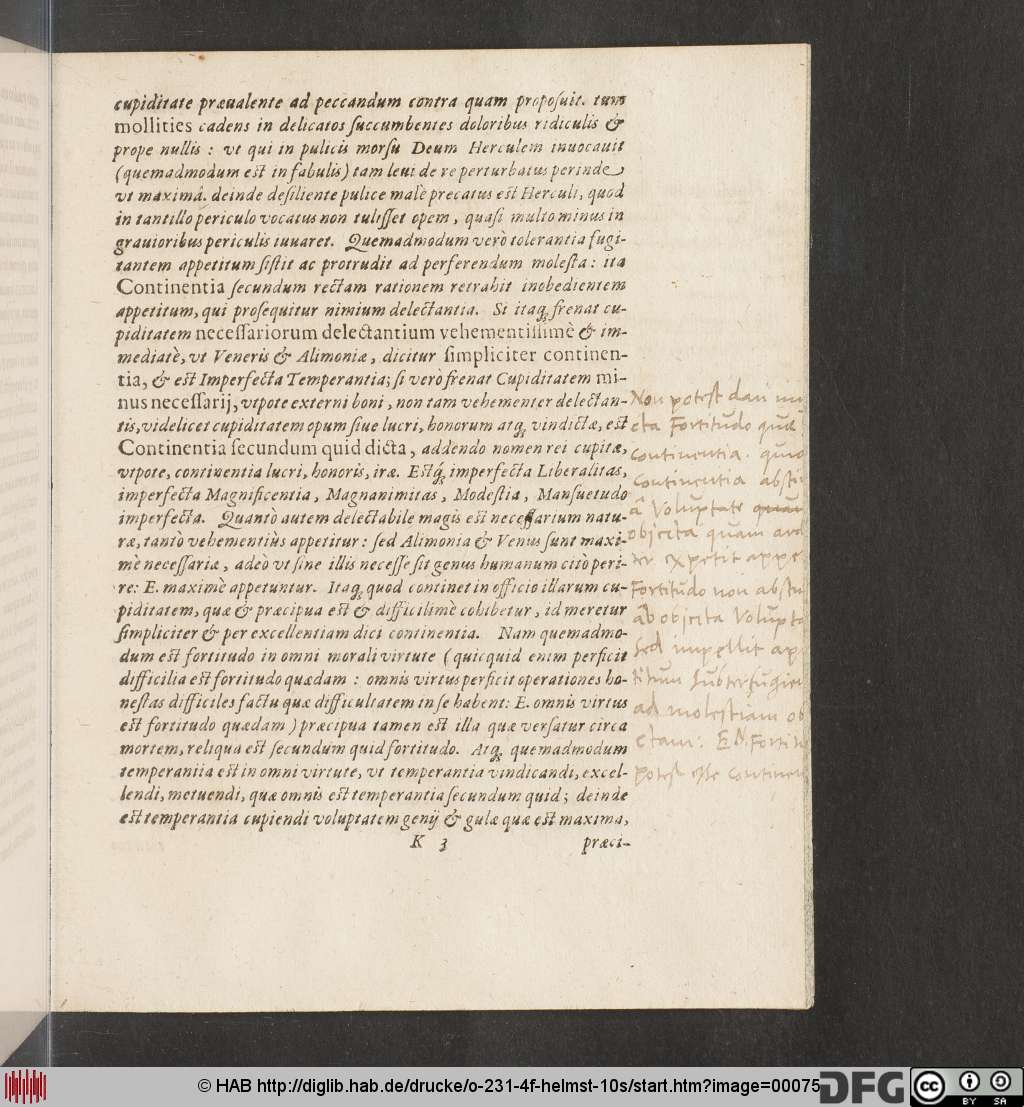 cupiditate præualente ad peccandum contra quam proposuit. tum
mollities cadens in delicatos succumbentes doloribus ridiculis &
prope nullis : vt qui in pulicis morsu Deum Herculem inuocauit
(quemadmodum est in fabulis) tam leui de re perturbatus perinde
vt maximâ. deinde desiliente pulice malè precatus est Herculi, quod
in tantillo periculo vocatus non tulisset opem, quasi multo minus in
grauioribus periculis iuuaret. Quemadmodum verò tolerantia fugi-
tantem appetitum sistit ac protrudit ad perferendum molesta : ita
Continentia secundum rectam rationem retrahit inobedientem
appetitum, qui prosequitur nimium delectantia. Si itaq; frenat cu-
piditatem necessariorum delectantium vehementissimè & im-
mediatè, vt Veneris & Alimoniæ, dicitur simpliciter continen-
tia, & est Imperfecta Temperantia; si verò frenat Cupiditatem mi-
nus necessarij, vtpote externi boni, non tam vehementer delectan-
tis, videlicet cupiditatem opum siue lucri, honorum atq; vindictæ, est
Continentia secundum quid dicta, addendo nomen rei cupitæ,
vtpote, continentia lucri, honoris, iræ. Estq; imperfecta Liberalitas,
imperfecta Magnificentia, Magnanimitas, Modestia, Mansuetudo
imperfecta. Quantò autem delectabile magis est necessarium natu-
ræ, tantò vehementiùs appetitur : sed Alimonia & Venus sunt maxi-
mè necessariæ, adeò vt sine illis necesse sit genus humanum citò peri-
re: E. maximè appetuntur. Itaq; quod continet in officio illarum cu-
piditatem, quæ & præcipua est & difficilimè cohibetur, id meretur
simpliciter & per excellentiam dici continentia. Nam quemadmo-
dum est fortitudo in omni morali virtute (quicquid enim perficit
difficilia est fortitudo quædam : omnis virtus perficit operationes ho-
nestas difficiles factu quæ difficultatem in se habent: E. omnis virtus
est fortitudo quædam) præcipua tamen est illa quæ versatur circa
mortem, reliqua est secundum quid fortitudo. Atq; quemadmodum
temperantia est in omni virtute, vt temperantia vindicandi, excel-
lendi, metuendi, quæ omnis est temperantia secundum quid; deinde
est temperantia cupiendi voluptatem genij & gulæ quæ est maxima,
K 3 præci-
Non potest dari
cta Fortitudo
continentia.
Continentia
â Voluptate
objecta quam
expetit
Fortitudo non
ab objecta
sed impellit
ad molestiam
potest esse
© HAB http://diglib.hab.de/drucke/o-231-4f-helmst-10s/start.htm?image=00075
DFG
cc BY SA